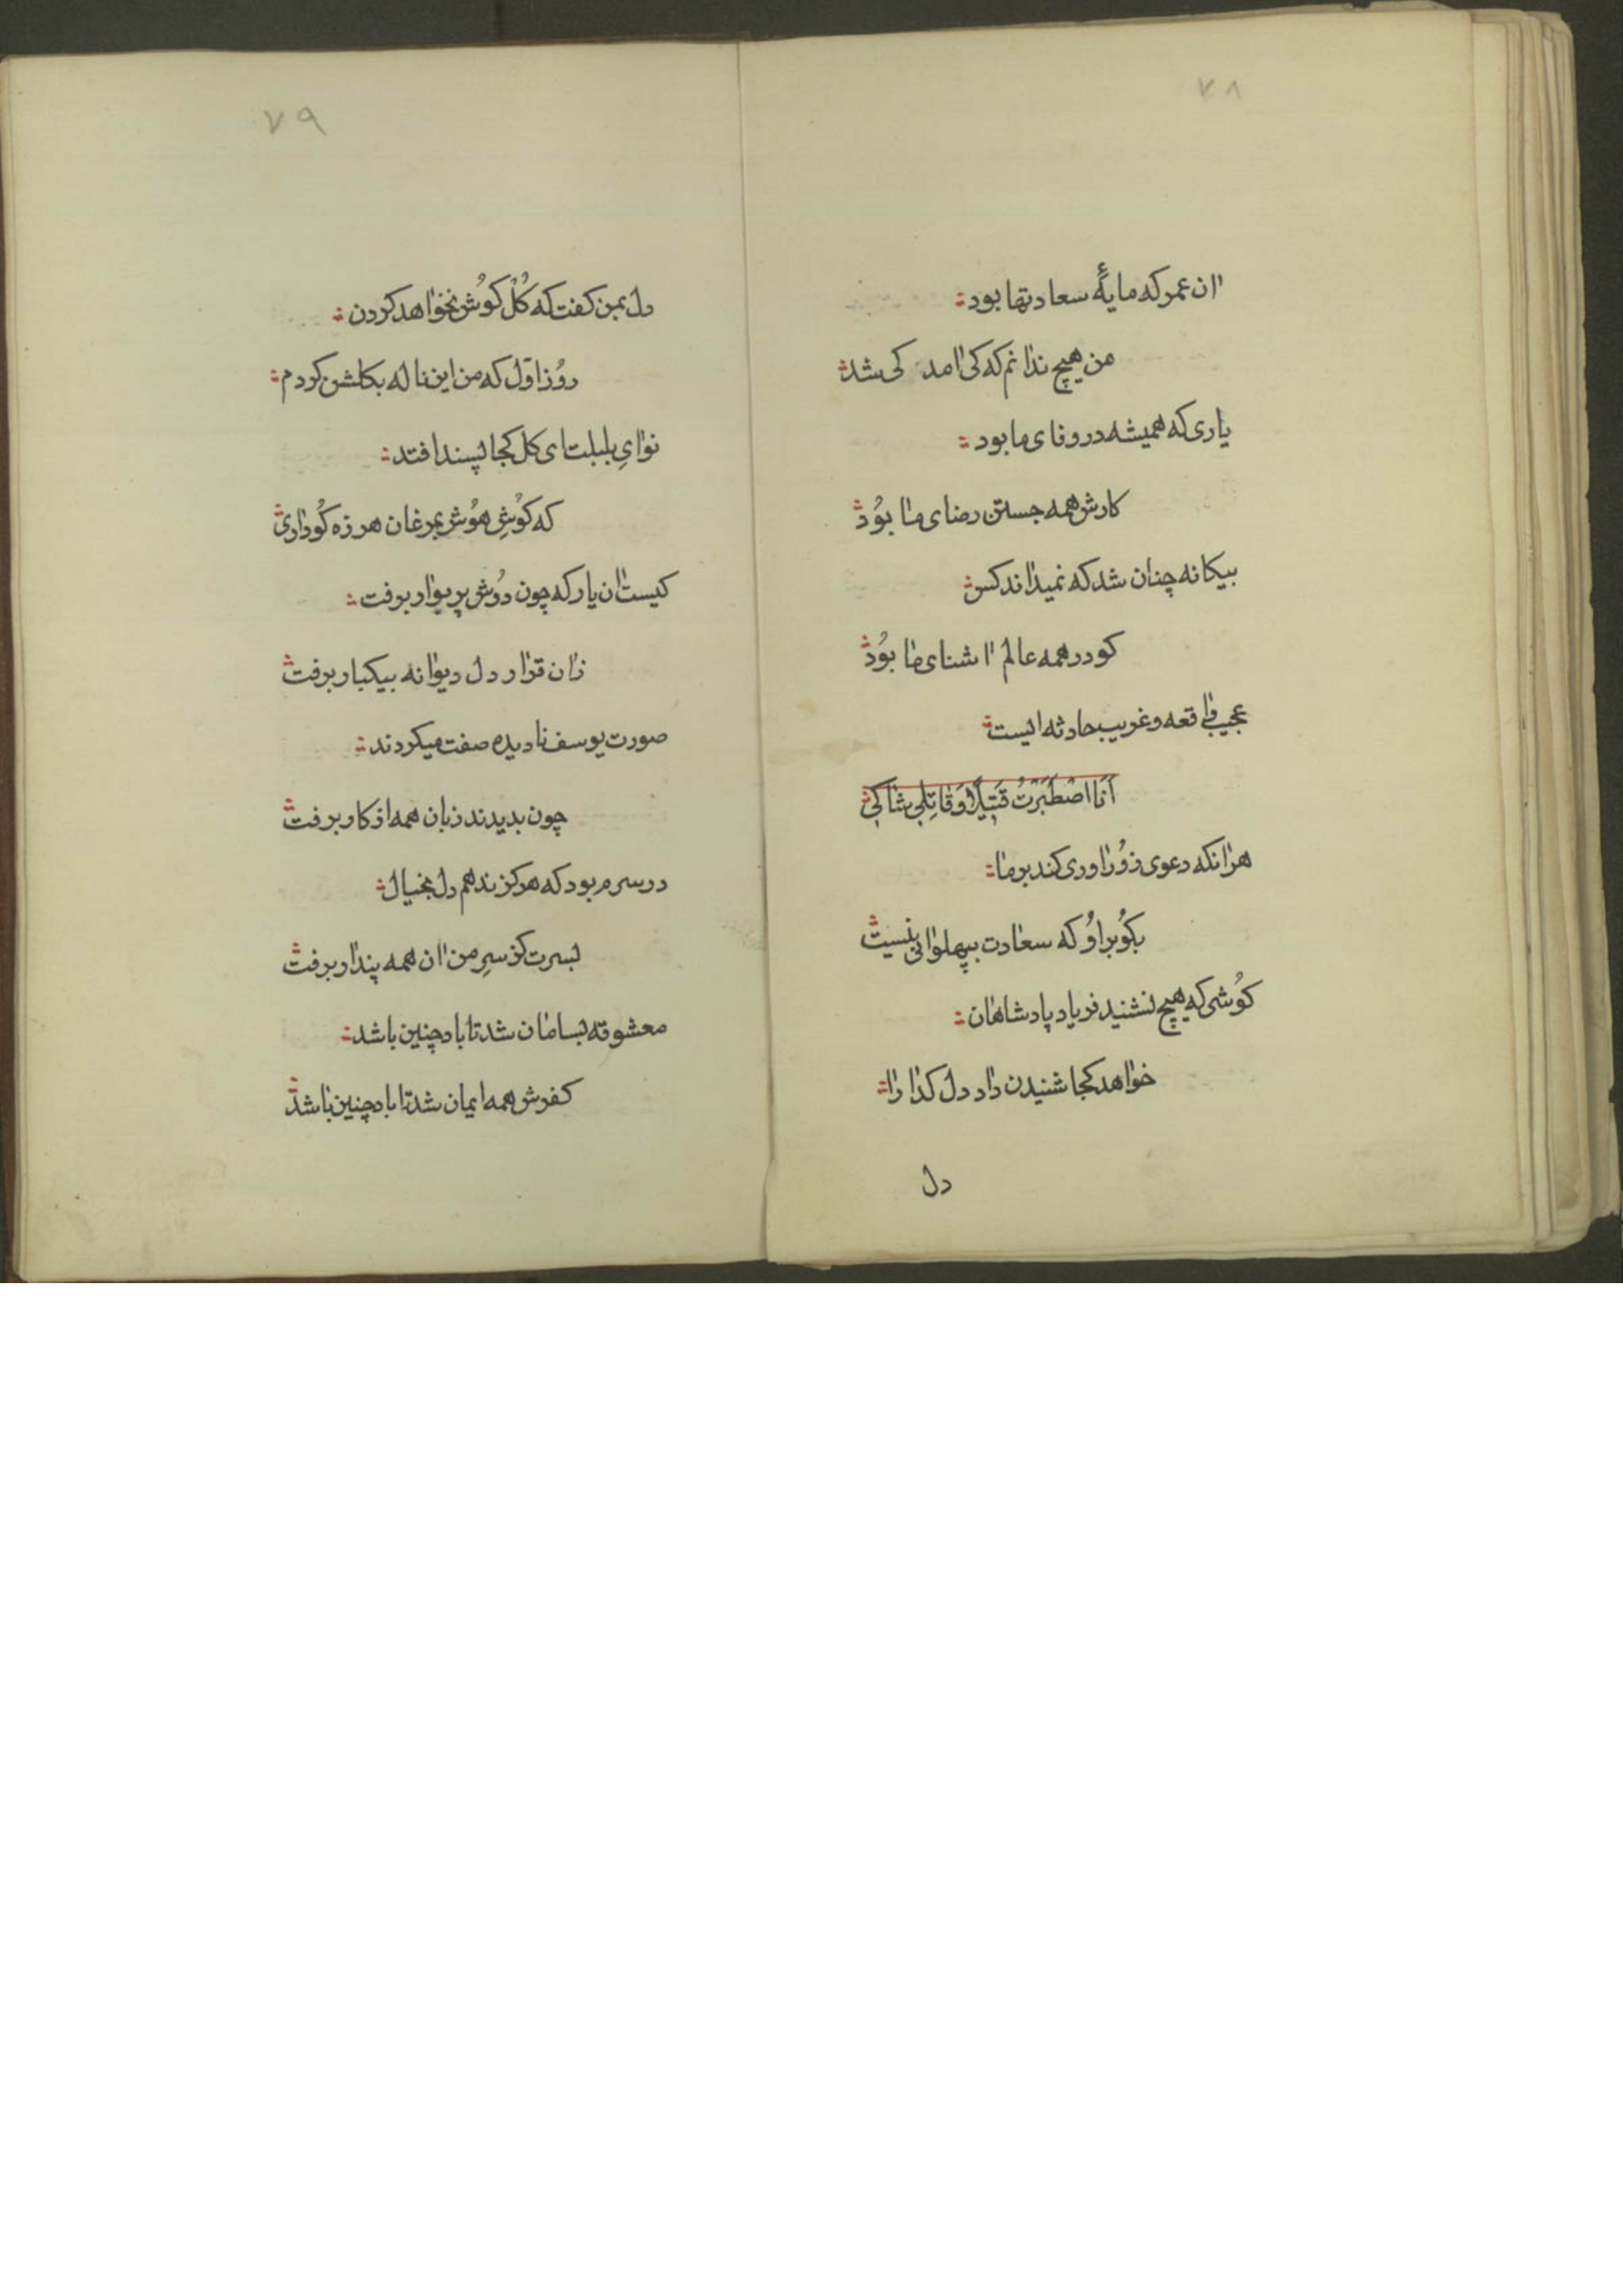 ۷۸
اان عمر که مایهٔ سعادتها بود
من هیچ ندانم که کی امد کی شد
یاری که همیشه در وفای ما بود
کارش همه جستن رضای ما بُود
بیکانه چنان شد که نمیداند کس
کو در همه عالم اشنای ما بُود
عجیب واقعه و غریب حادثه ایست
اَنَا اصْطَبَرْتُ قَتِیلًا وَقَاتِلِی شاکِی
هرانکه دعوی زوُراوری کند بر ما
بکُو بر اوُ که سعادت بپهلوانی نیست
کوُشی که هیچ نشنید فریاد پادشاهان
خواهد کجا شنیدن داد دل کدا را
دل
۷۹
دل بمن کفت که کُل کوُش نخواهد کردن
روُز اوّل که من این ناله بکلشن کردم
نوایِ بلبلت ای کل کجا پسند افتد
که کوُشِ هوُش بمرغان هرزه کوُ داری
کیست ان یار که چون دوُش پریوار برفت
زان قرار دل دیوانه بیکبار برفت
صورت یوسف نادیده صفت میکردند
چون بدیدند زبان همه از کار برفت
در سرم بود که هرکز ندهم دل بخیال
بسرت کز سرِ من ان همه پندار برفت
معشوقه بسامان شد تا باد چنین باشد
کفرش همه ایمان شد تا باد چنین باشد